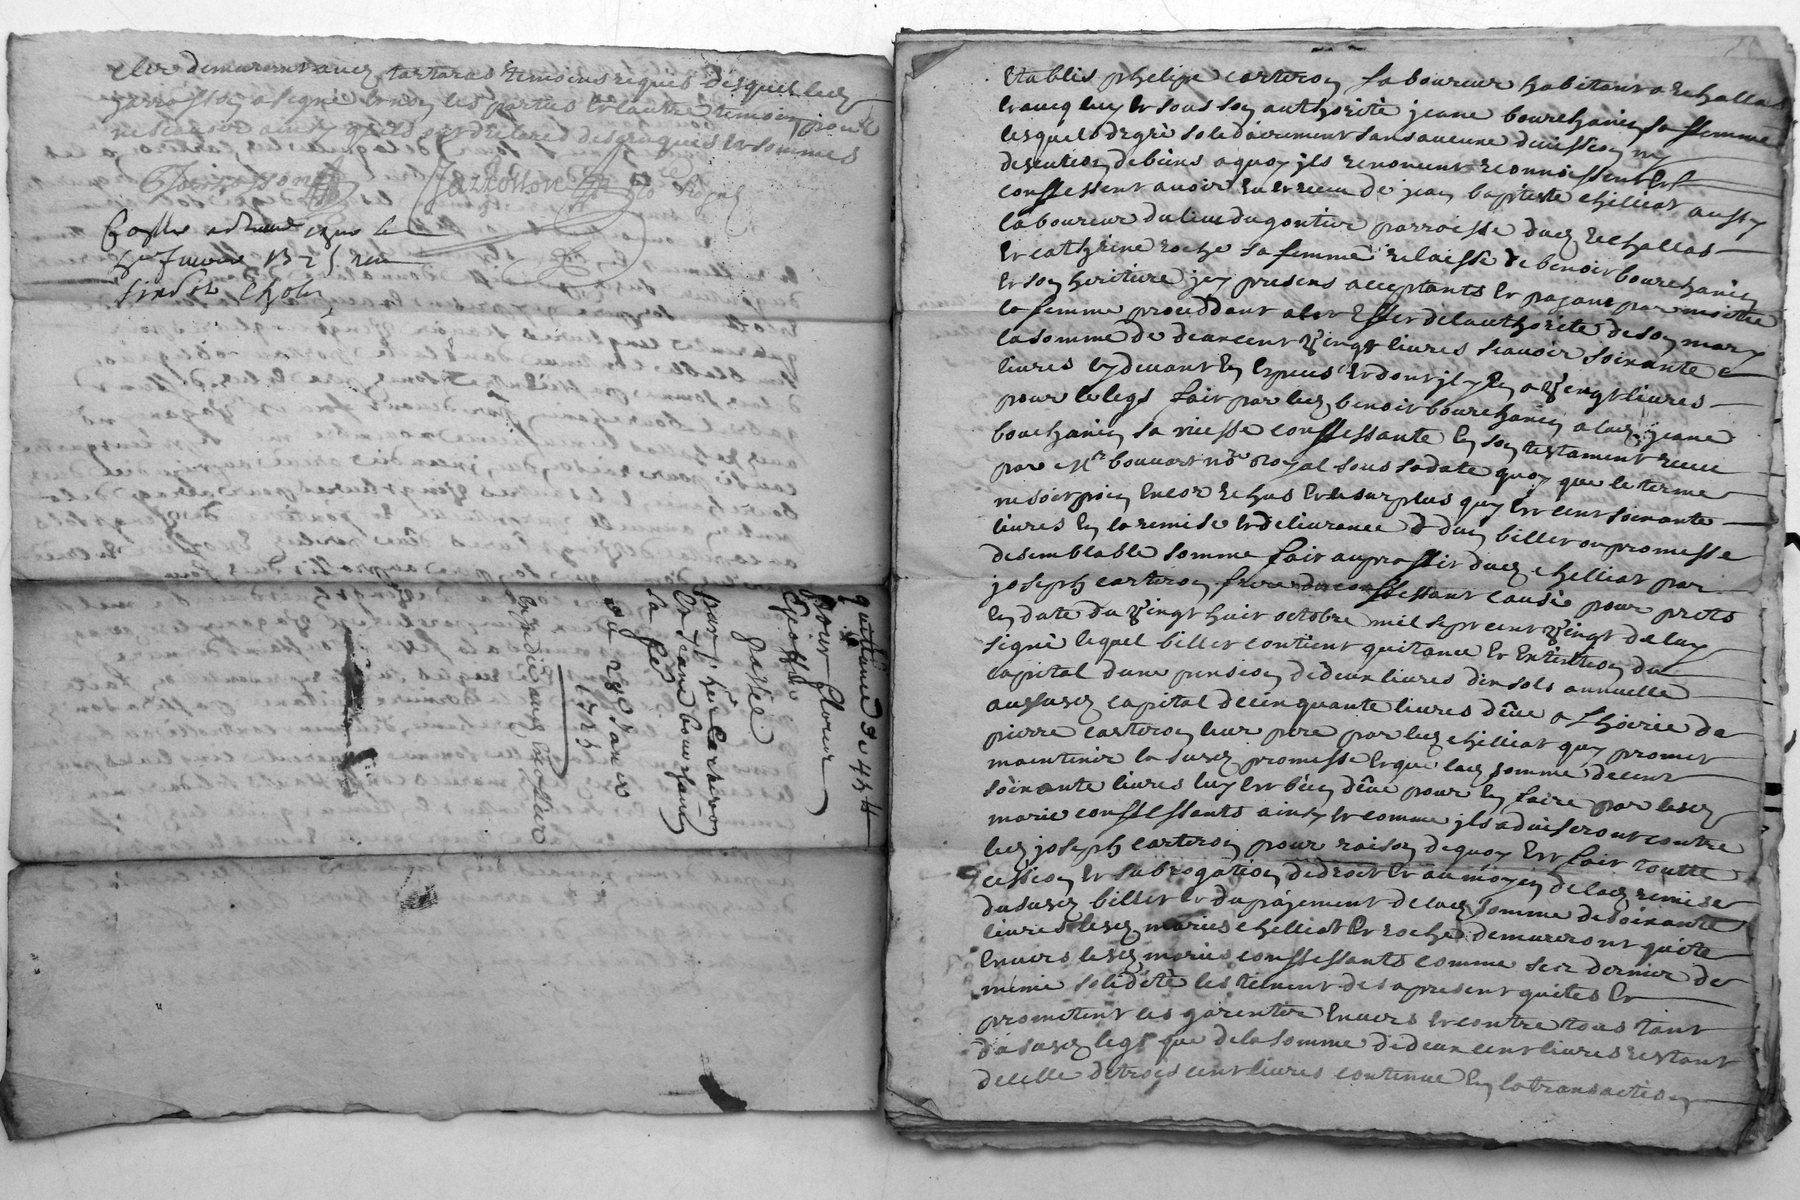 clerc demeurant avec tartaras temoins requis desquels led
jarrosson a signé et non les parties et l'autre temoin pour
ne scavoir ainsy qu'ils ont declaré des enquis et sommes
Jarrosson
signé
quittance de 45 ₶
pour
passée
par phe Carteron
et Jeane Bourchanin
sa fe
du 28e Janier
1725
Etablis phelipe carteron laboureur habitant a Echallas
et avecq luy et sous son authorité jeane bourchanin sa femme
lesquels de gré solidairement sans aucune division ny
discution de biens a quoy ils renoncent reconnoissent et
confessent avoir eu et receu de jean baptiste chilliat aussy
laboureur du lieu du gontier parroisse dud Echallas
et catherine roche sa femme relaissée de benoit bourchanin
et son heritiere icy presens acceptants et payans par moitie
la femme proceddant a cet effet de l'authorité de son mary
la somme de deux cent vingt livres scavoir soixante
livres cy devant en especes et dont il y en a vingt livres
pour le legs fait par led benoit bourchanin a lad jeane
bouchanin sa niesse confessante en son testament receu
par Mr bouvart nore royal sous sa date quoy que le terme
ne soit poin encor echus et le surplus quy est cent soixante
livres en la remise et delivrance d dun billet ou promesse
de semblable somme fait au proffit dud chilliat par
joseph carteron frere du confessant causé pour prets
en date du vingt huit octobre mil sept cent vingt de luy
signé lequel billet contient quitance et extintion du
capital dune pension de deux livres dix sols annuelle
au susd capital de cinquante livres düe a l'hoirie de
pierre carteron leur pere par led chilliat quy promet
maintenir la susd promesse et que lad somme de cent
soixante livres luy est bien düe pour en faire par lesd
marié confessants ainsy et comme ils adviseront contre
led joseph carteron pour raison de quoy est fait toutte
cession et subrogation de droit et au moyen de lad remise
du susd billet et du payement de lad somme de soixante
livres lesd mariés chilliat et roche demureront quitte
envers lesd mariés confessants comme
même solidité les tiennent des a present quites et
promettent les garentir envers et contre tous tant
du susd legs que de la somme de deux cent livres restant
de celle de trois cent livres contenue en la transaction